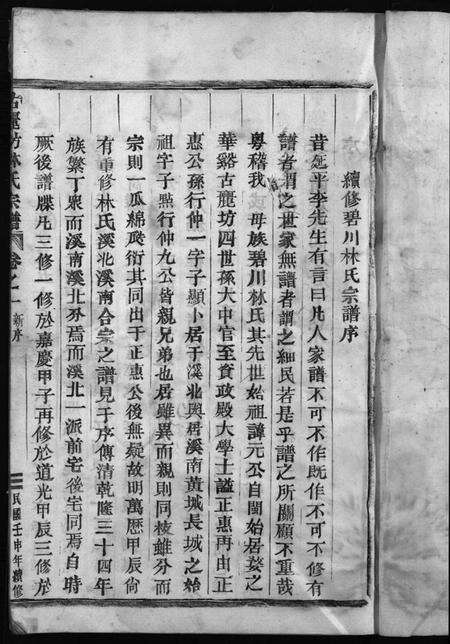 續修碧川林氏宗譜序
昔延平李先生有言曰凡人家譜不可不作既作不可不修有
譜者謂之世家無譜者謂之細民若是乎譜之所關顧不重哉
粵稽我 母族碧川林氏其先世始祖諱元公自閩始居婺之
華谿古塵坊四世孫大中官至資政殿大學士謚正惠再由正
惠公孫行仲一字子顯卜居于溪北與橋溪南黃城長城之始
祖字子點行仲九公皆親兄弟也居雖異而親則同枝雖分而
宗則一瓜綿瓞衍其同出于正惠公後無疑故明萬歷甲辰尙
有重修林氏溪北溪南合宗之譜見于序傳清乾隆三十四年
族繁丁衆而溪南溪北分焉而溪北一派前宅後宅同焉自時
厥後譜牒凡三修一修於嘉慶甲子再修於道光甲辰三修於
坊林氏宗譜 卷之一 新序
民國壬申年續修